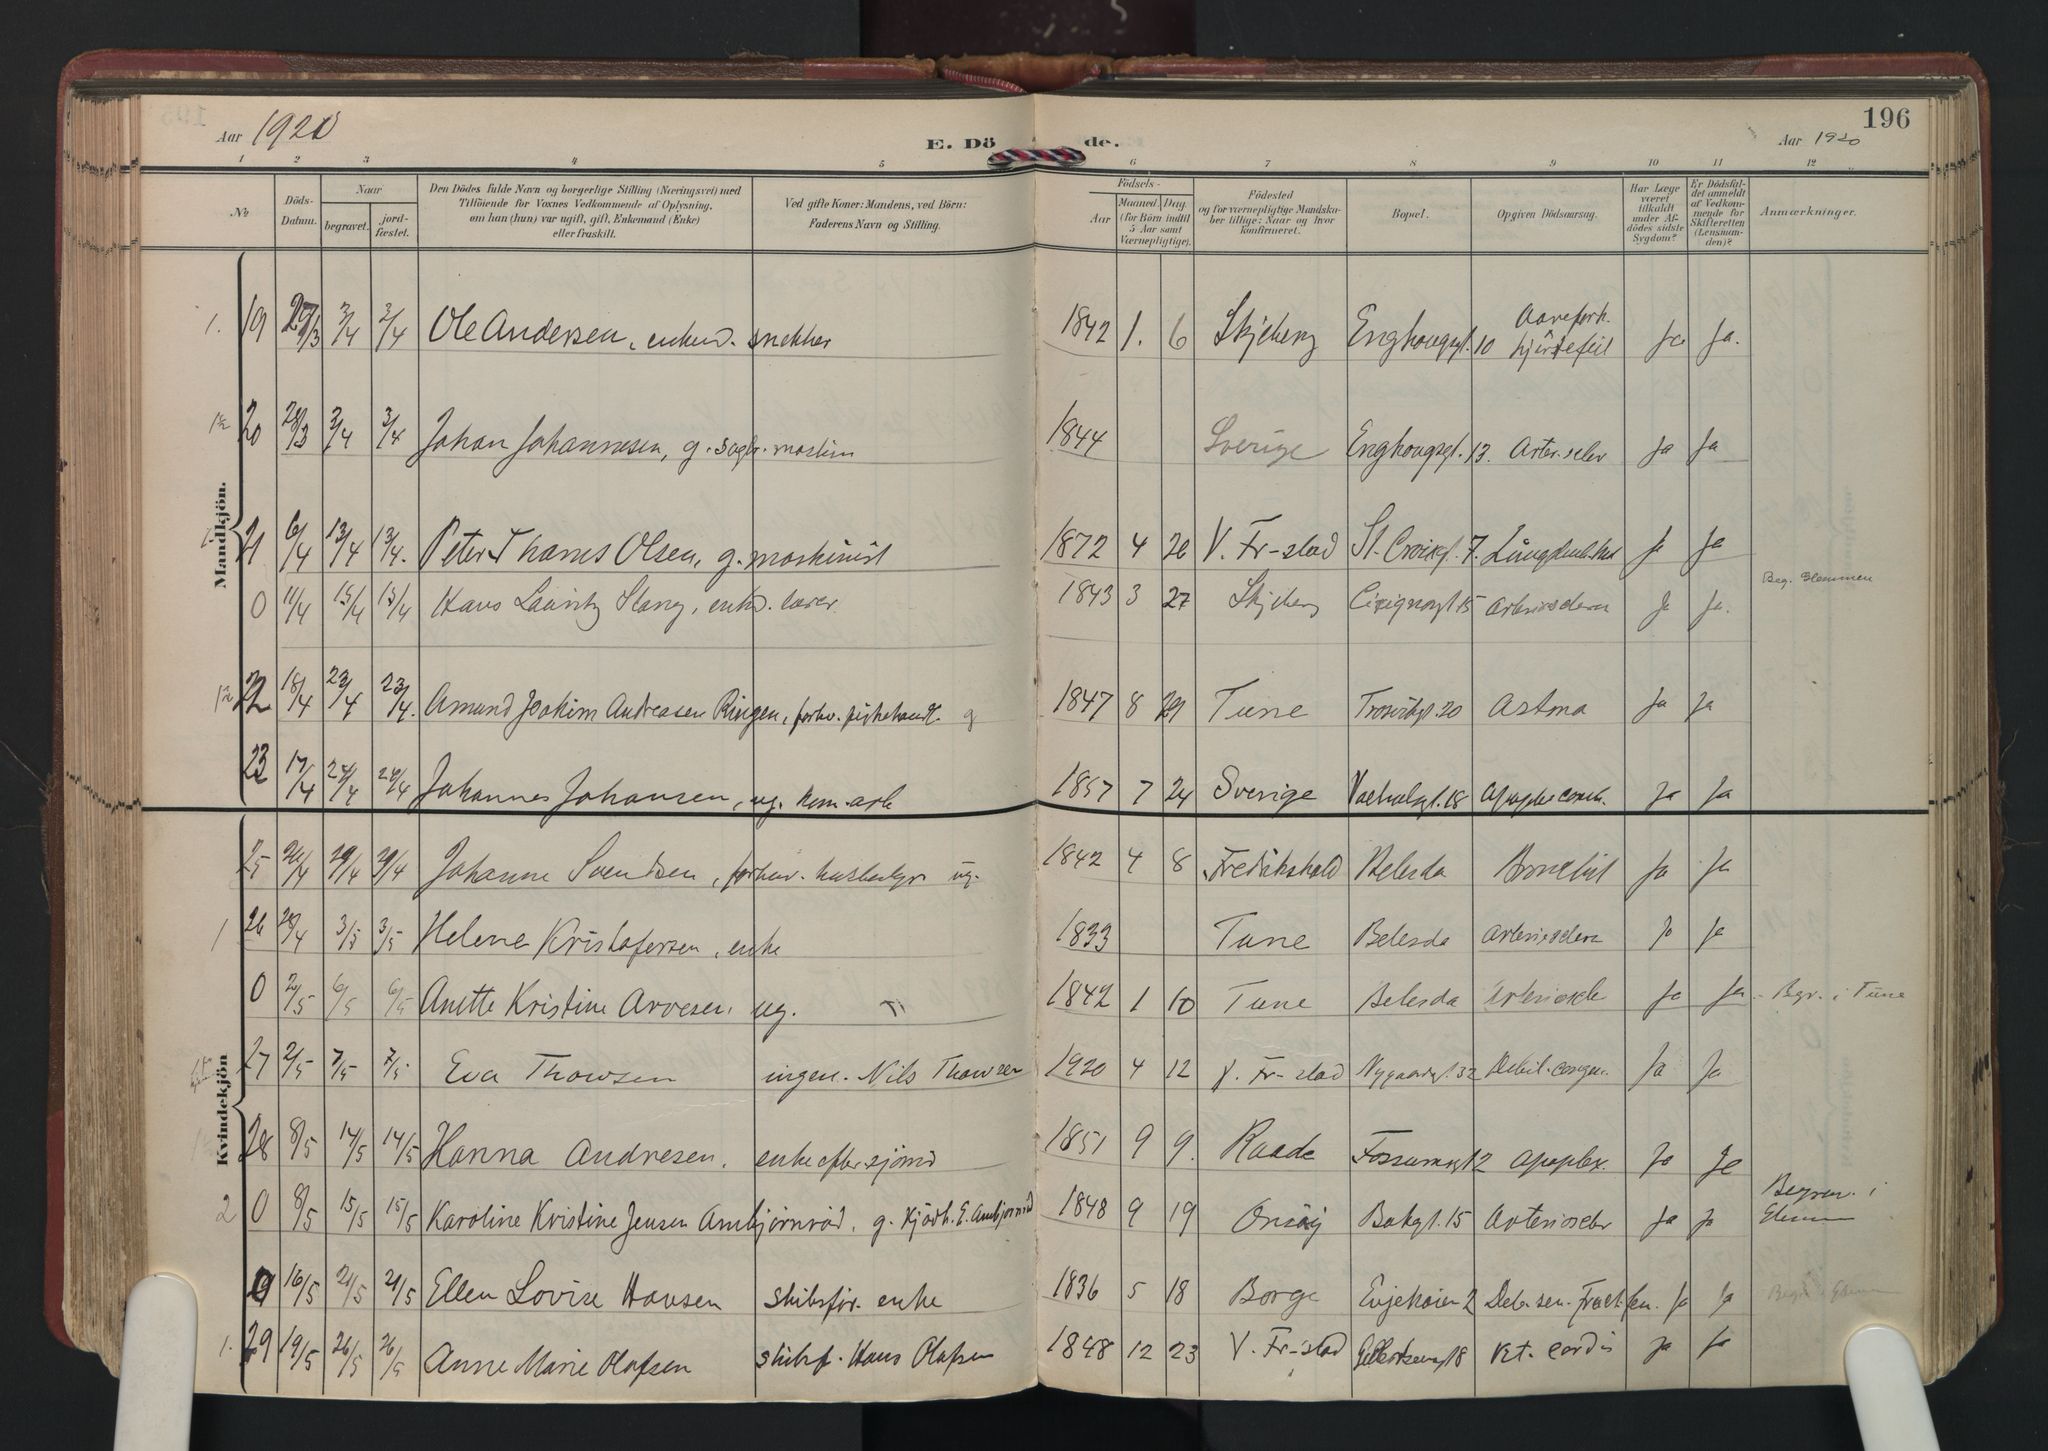 196
Aar 1920
E. Dö de.
Aar 1920
1 2 3 4 5 6 7 8 9 10 11 12
№
Döds-Datum.
Naar begravet. jord-fæstet.
Den Dödes fulde Navn og borgerlige Stilling (Næringsvei) med
Tilföiende for Voxnes Vedkommende af Oplysning,
om han (hun) var ugift, gift, Enkemand (Enke)
eller fraskilt.
Ved gifte Koner: Mandens, ved Börn:
Faderens Navn og Stilling.
Födsels-
Aar Maaned. Dag.
(for Börn indtil 5 Aar samt Værnepligtige).
Födested
og for værnepligtige Mandska-
ber tillige: Naar og hvor
konfirmeret.
Bopæl.
Opgiven Dödsaarsag.
Har Læge været tilkaldt under Af-dödes sidste Sygdom?
Er Dödsfal-det anmeldt af Vedkom-mende for Skifteretten (Lensman-den)?
Anmærkninger.
Mandkjön.
1. 19 3/4 3/4 Ole Andersen, enkem. snekker 1842 1. 6 Skjeberg Enghougsgt. 10 Aarefork. hjertefeil Ja Ja.
20 28/3 3/4 3/4 Johan Johannesen, g. sagbr. maskin 1844 Sverige Enghougsgt. 13. Arter. scler Ja Ja
21 6/4 13/4 13/4. Peter Thoms Olsen, g. maskinist 1872 4 V. Fr-stad St. Croixgt. 7. Ja Ja
0 11/4 15/4 15/4 Hans Lauritz Stang, enkem. lærer. 1843 3 27 Skjeberg Cicignongt 15 Arteriosclera Ja Ja. Beg. Glemmen
22 18/4 23/4 23/4. Amund Joakim Andreasen Ringen, forhv. fiskehandl. g 1847 8 29 Tune Trosvikgt. 20 Astma Ja Ja
23 17/4 24/4 24/4 Johannes Johansen, ug. kom. arb 1857 7 24 Sverige Ja Ja
Kvindekjön
25 24/4 29/4 29/4 Johanne Svendsen, forhenv. husbestyr ug. 1842 4 8 Fredrikshald Belesda Ja Ja
1 26 28/4 3/5 3/5 Helene Kristofersen, enke 1833 Tune Belesda Arteriosclera Ja Ja
0 2/5 6/5 6/5 Anette Kristine Arvesen, ug. 1842 1 10 Tune Belesda Arterioscle Ja Ja - Begr. i Tune
27 2/5 7/5 7/5 Eva Thowsen ingen. Nils Thowsen 1920 4 12 V. Fr-stad Nygaardsgt. 32 Debil. congen. Ja Ja
28 8/5 14/5 14/5 Hanna Andresen, enke efter sjömd 1851 9 9. Raade Fossumsgt 2 Apoplex. Ja Ja
2 0 8/5 15/5 15/5 Karoline Kristine Jensen Ambjørnrød, g. Kjöbm. E. Ambjørnrød 1848 9 19 Onsøy Bakgt. 15 Arterioscler Ja Ja Begrav. i Glemm
0 16/5 21/5 21/5 Ellen Lovise Hansen skibsför. enke 1836 5 18 Borge Evjekaien 2 Deb. sen. Fract. fem. Ja Ja Begr. i Glemm
1. 29 19/5 26/5 26/5 Anne Marie Olafsen skibsf. Hans Olafsen 1848 12 23 V. Fr-stad Gilbertsensgt 8 Vit. cordis Ja Ja